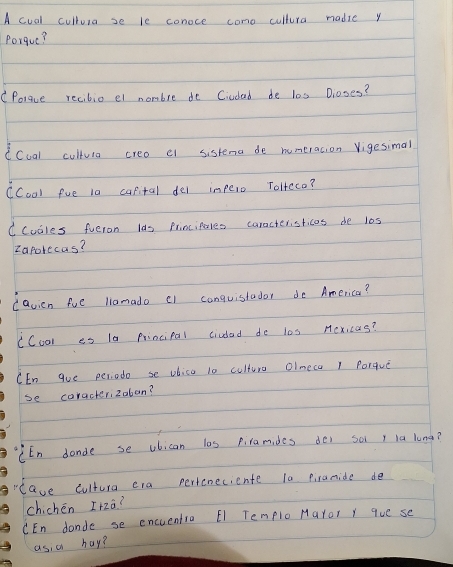 A cual cultura se le conoce como cultura madre y
Porque?
¿Porque recibio el nombre de Ciudad de los Dioses?
¿Cual cultura creo el sistema de numeracion Vigesimal
¿Cual fue la capital del imperio Tolteca?
¿Cuáles fueron las Principales caracteristicas de los
zapotecas?
¿Quien fue llamado el conquistador de America?
¿Cual es la Principal ciudad de los Mexicas?
¿En que periodo se ubica la cultura Olmeca y Porqué
se caracterizaban?
¿En donde se ubican las Piramides del sol y la luna?
¿Que cultura era Perteneciente la Piramide de
chichén Itzá?
¿En donde se encuentra El Templo Mayor y que se
asia hay?